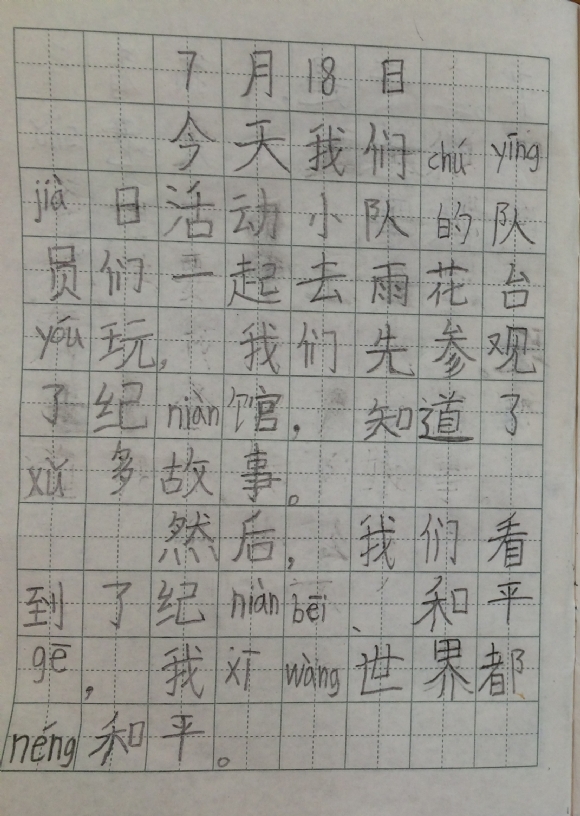 7月18日
今天我们chú yīng
jià日活动小队的队
员们一起去雨花台
yóu玩，我们先参观
了纪niàn馆，知道了
xǔ多故事。
然后，我们看
到了纪niàn bēi、和平
gē，我xī wàng世界都
néng和平。